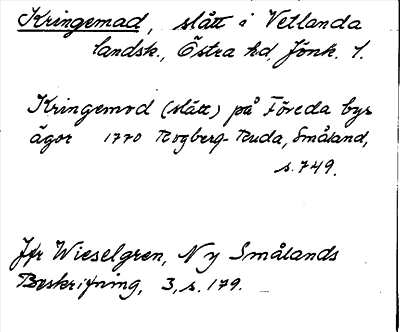 Kringemad, slått i Vetlanda
landsk., Östra hd, Jönk. l.
Kringemod (slått) på Föreda bys
ägor 1770 Rogberg-Ruda, Småland,
s. 749.
Jfr Wieselgren, Ny Smålands
Beskrifning, 3, s. 179.